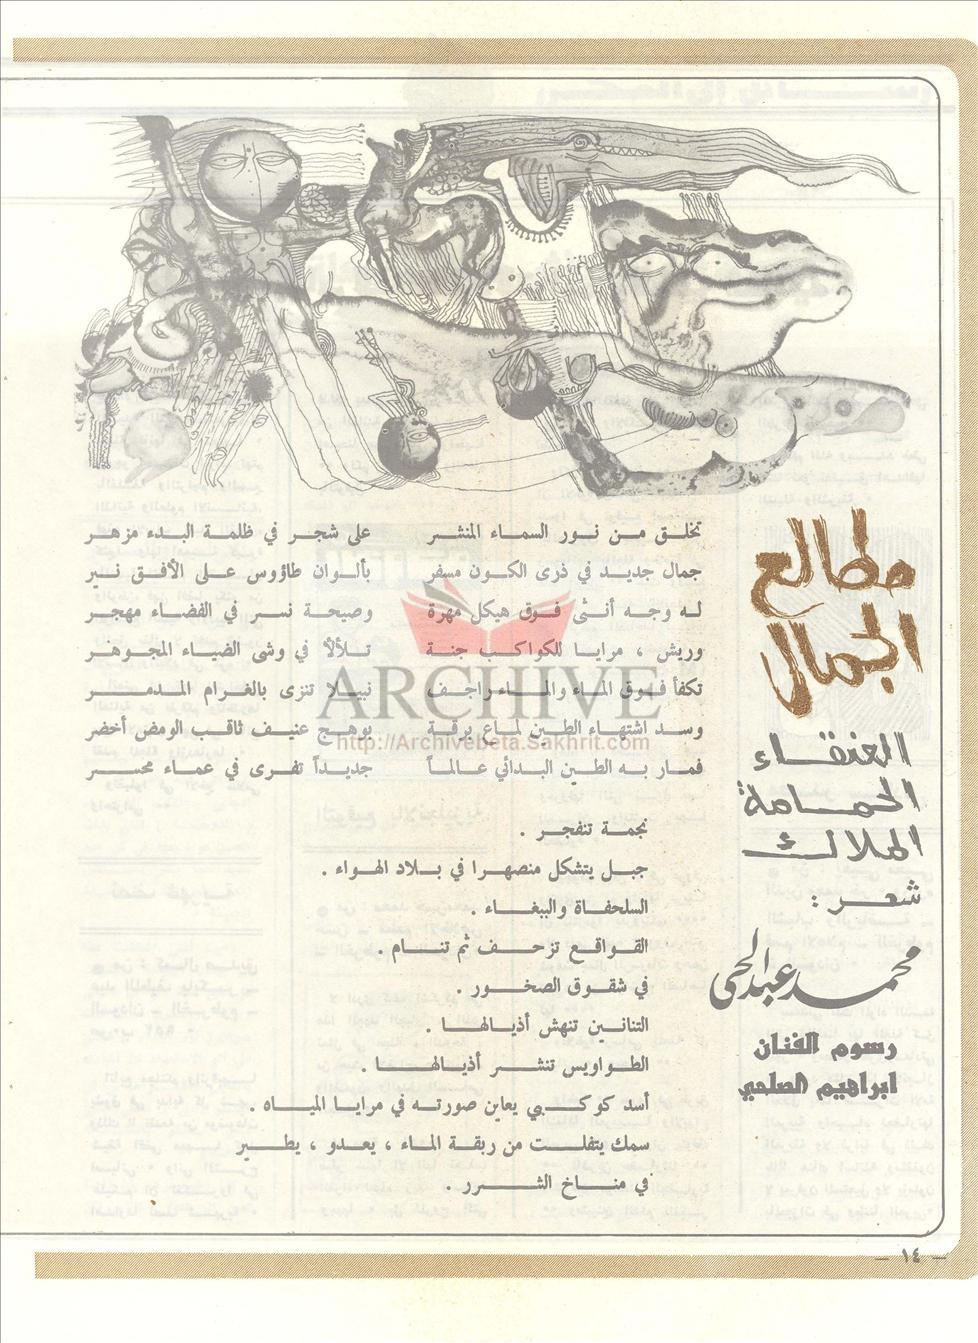 مطالع
الجمال
العنقاء
الحمامة
الملاك
شعر :
محمد عبد الحي
رسوم الفنان
ابراهيم الصلحي
تخلق من نور السماء المنشر على شجر في ظلمة البدء مزهر
جمال جديد في ذرى الكون مسفر بألوان طاؤوس على الأفق نير
له وجه أنثى فوق هيكل مهرة وصيحة نسر في الفضاء مهجر
وريش ، مرايا للكواكب جنة تلألأ في وشى الضياء المجوهر
تكفأ فوق الماء والماء راجف نبيلا تنزى بالغرام المدمر
وسد اشتهاء الطين لماع برقة بوهج عنيف ثاقب الومض أخضر
فمار به الطين البدائي عالماً جديداً تفرى في عماء محسر
نجمة تنفجر .
جبل يتشكل منصهرا في بلاد الهواء .
السلحفاة والببغاء .
القواقع تزحف ثم تنام .
في شقوق الصخور .
التنانين تنهش أذيالها .
الطواويس تنشر أذيالها .
أسد كوكبي يعاين صورته في مرايا المياه .
سمك يتفلت من ربقة الماء ، يعدو ، يطير
في مناخ الشرر .
ARCHIVE
http://Archivebeta.Sakhrit.com
— ١٤ —